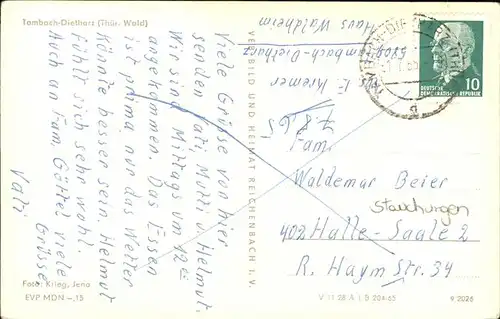 Tambach-Dietharz (Thür. Wald)
Viele Grüße von hier
senden Vati, Mutti u. Helmut.
Wir sind Mittags um 12
angekommen. Das Essen
ist prima nur das Wetter
könnte besser sein. Helmut
fühlt sich sehr wohl.
Auch an Fam. Göttel viele
Grüsse
Vati
Foto: Krieg, Jena
EVP MDN -,15
VERLAG BILD UND HEIMAT REICHENBACH I. V.
E. Kremer
5809 Tambach-Dietharz
Haus Waldheim
7.8.65
DEUTSCHE
DEMOKRATISCHE REPUBLIK
10
Fam.
Waldemar Beier
Stauchungen
402 Halle-Saale 2
R. Haym Str. 34
V 11 28 A 1 B 204-65
9 2026